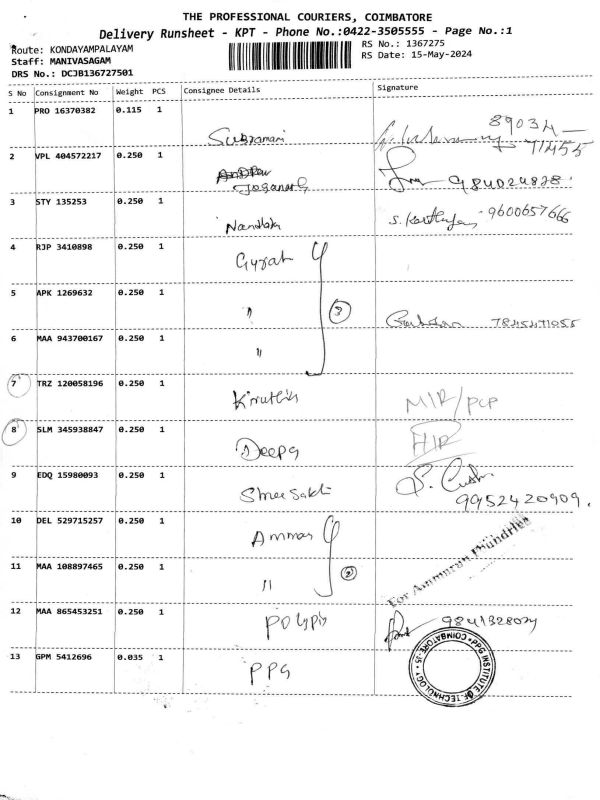 THE PROFESSIONAL COURIERS, COIMBATORE
Delivery Runsheet - KPT - Phone No.:0422-3505555 - Page No.:1
Route: KONDAYAMPALAYAM RS No.: 1367275
Staff: MANIVASAGAM RS Date: 15-May-2024
DRS No.: DCJB136727501
S No Consignment No Weight PCS Consignee Details Signature
1 PRO 16370382 0.115 1
Subramani 89034 71455
2 VPL 404572217 0.250 1
Joganath
3 STY 135253 0.250 1
9600657666
4 RJP 3410898 0.250 1
Gujrat
5 APK 1269632 0.250 1
" 3
6 MAA 943700167 0.250 1
"
7 TRZ 120058196 0.250 1
Kiruthik MIR/PCP
8 SLM 345938847 0.250 1
Deepa HIR
9 EDQ 15980093 0.250 1
Shree Sakti 9952420909.
10 DEL 529715257 0.250 1
Ammar
11 MAA 108897465 0.250 1
" 2 For Ammurun Foundries
12 MAA 865453251 0.250 1
9841328024
13 GPM 5412696 0.035 1
PPG PPG INSTITUTE OF TECHNOLOGY COIMBATORE-35